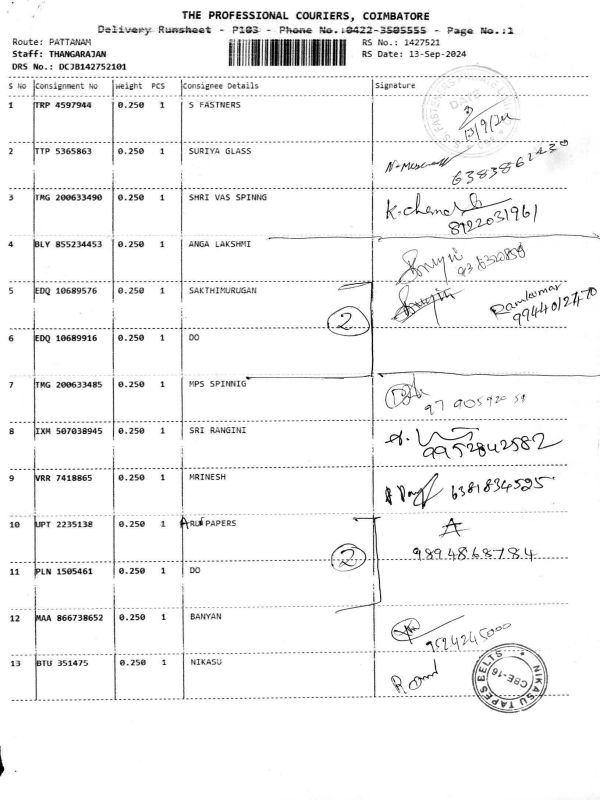 THE PROFESSIONAL COURIERS, COIMBATORE
Delivery Runsheet - P103 - Phone No.:0422-3505555 - Page No.:1
Route: PATTANAM RS No.: 1427521
Staff: THANGARAJAN RS Date: 13-Sep-2024
DRS No.: DCJB142752101
S No Consignment No Weight PCS Consignee Details Signature
1 TRP 4597944 0.250 1 S FASTNERS
13/9/24
2 TTP 5365863 0.250 1 SURIYA GLASS
6383862430
3 TMG 200633490 0.250 1 SHRI VAS SPINNG
8122031961
4 BLY 855234453 0.250 1 ANGA LAKSHMI
5 EDQ 10689576 0.250 1 SAKTHIMURUGAN
Ramkumar
9944012470
2
6 EDQ 10689916 0.250 1 DO
7 TMG 200633485 0.250 1 MPS SPINNIG
8 IXM 507038945 0.250 1 SRI RANGINI
9952842582
9 VRR 7418865 0.250 1 MRINESH
6381834525
10 UPT 2235138 0.250 1 ARUN PAPERS
A
9894868784
2
11 PLN 1505461 0.250 1 DO
12 MAA 866738652 0.250 1 BANYAN
9524245000
13 BTU 351475 0.250 1 NIKASU
NIKASU TAPES EELTS
CBE-16